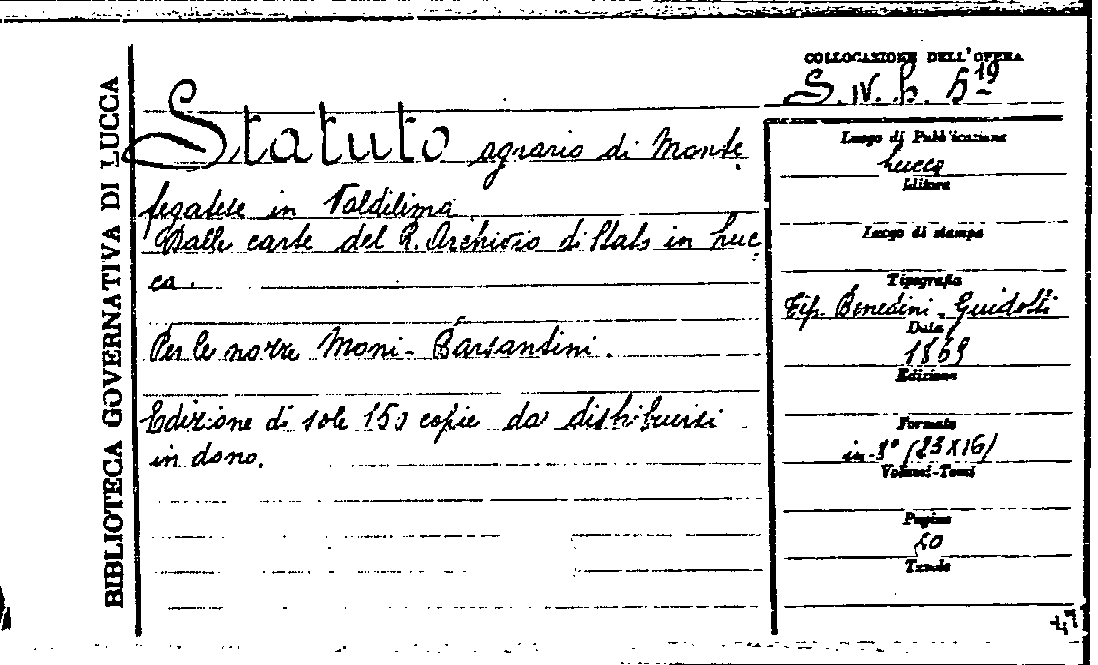 BIBLIOTECA GOVERNATIVA DI LUCCA
COLLOCAZIONE DELL'OPERA
S. IV. b. 5 19
Statuto agrario di Monte
fegatese in Valdilima.
Dalle carte del R. Archivio di Stato in Luc
ca.
Per le nozze Moni - Barsantini.
Edizione di sole 150 copie da distribuirsi
in dono.
Luogo di Pubblicazione
Lucca
Editore
Luogo di stampa
Tipografia
Tip. Benedini - Guidotti
Data
1869
Edizione
Formato
in-8° (23X16)
Volumi-Tomi
Pagine
Tavole